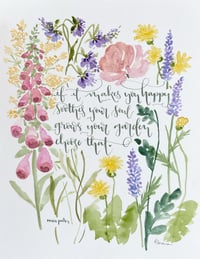 if it makes you happy
soothes your soul
grows your garden
choose that.